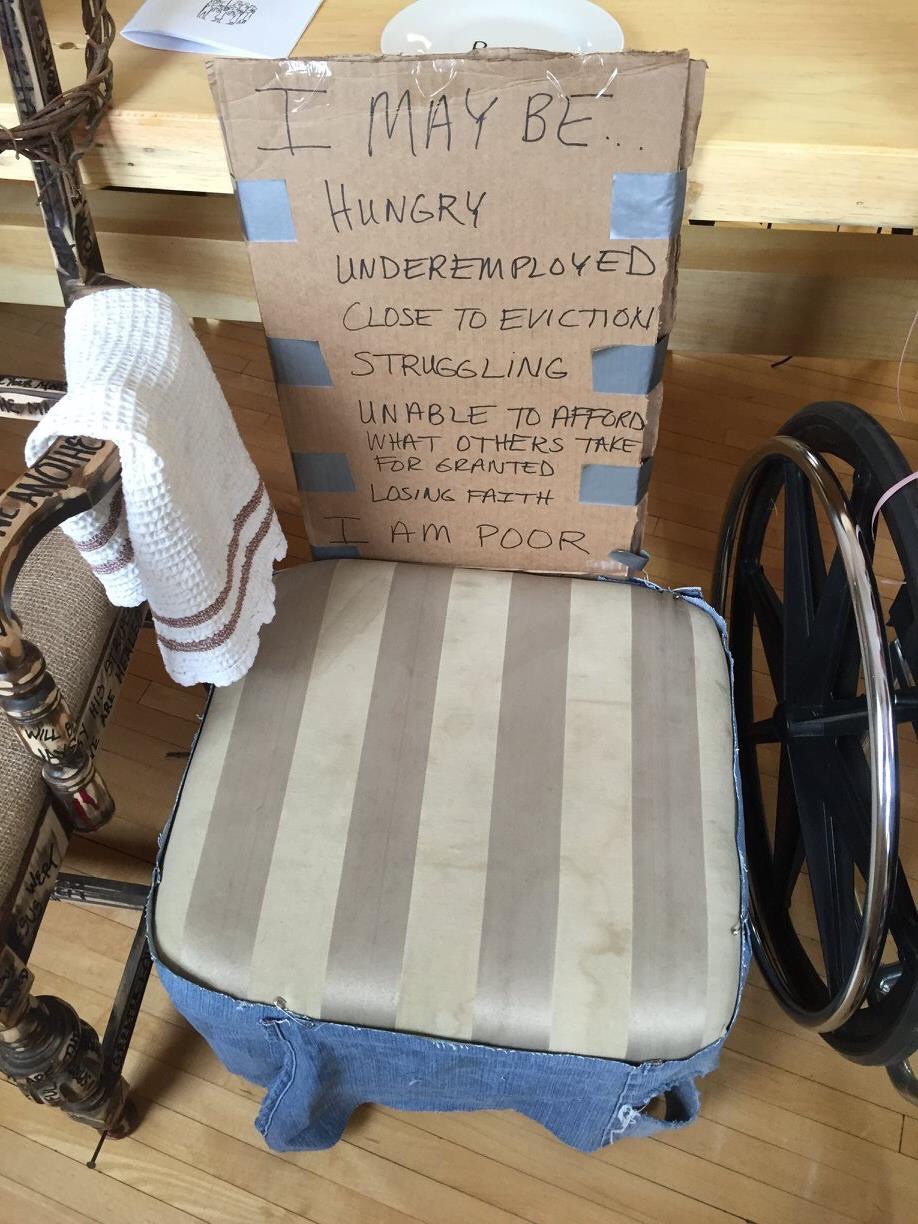 I MAY BE...
HUNGRY
UNDEREMPLOYED
CLOSE TO EVICTION
STRUGGLING
UNABLE TO AFFORD
WHAT OTHERS TAKE
FOR GRANTED
LOSING FAITH
I AM POOR
ANOTHE
WILL B
HIS
ARE HE
WEPT